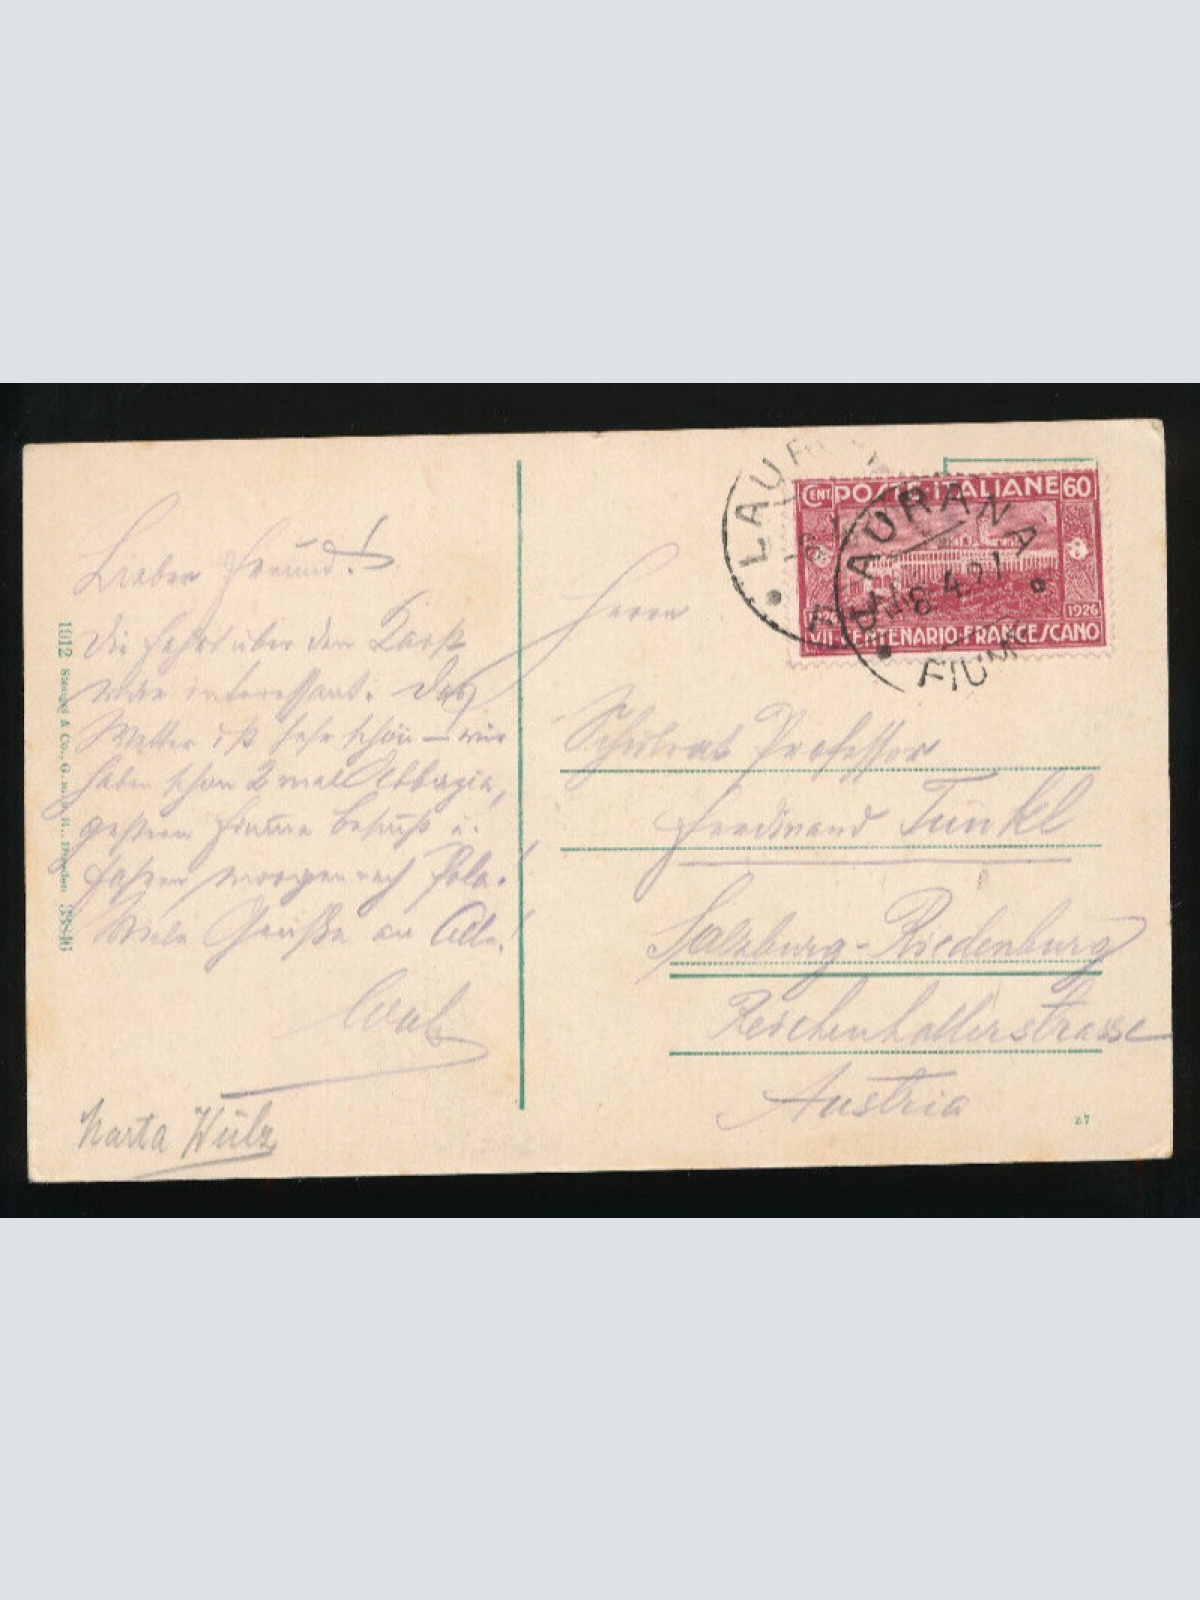 Lieber Freund!
Die Fahrt über den Karst
war interessant. Das
Wetter ist sehr schön – wir
haben schon 2 mal Abbazia,
gestern Fiume besucht u.
fahren morgen nach Pola.
Viele Grüße an Alle!
Walz
Marta Wülz
1612 Stengel & Co., G. m. b. H., Dresden 33846
LAURANA
CENT. POSTE ITALIANE 60
LAURANA
8.4.27
FIUME
1226 1926
VII CENTENARIO FRANCESCANO
Herrn
Schulrat Professor
Ferdinand Tunkl
Salzburg-Riedenburg
Reichenhallerstrasse
Austria
27